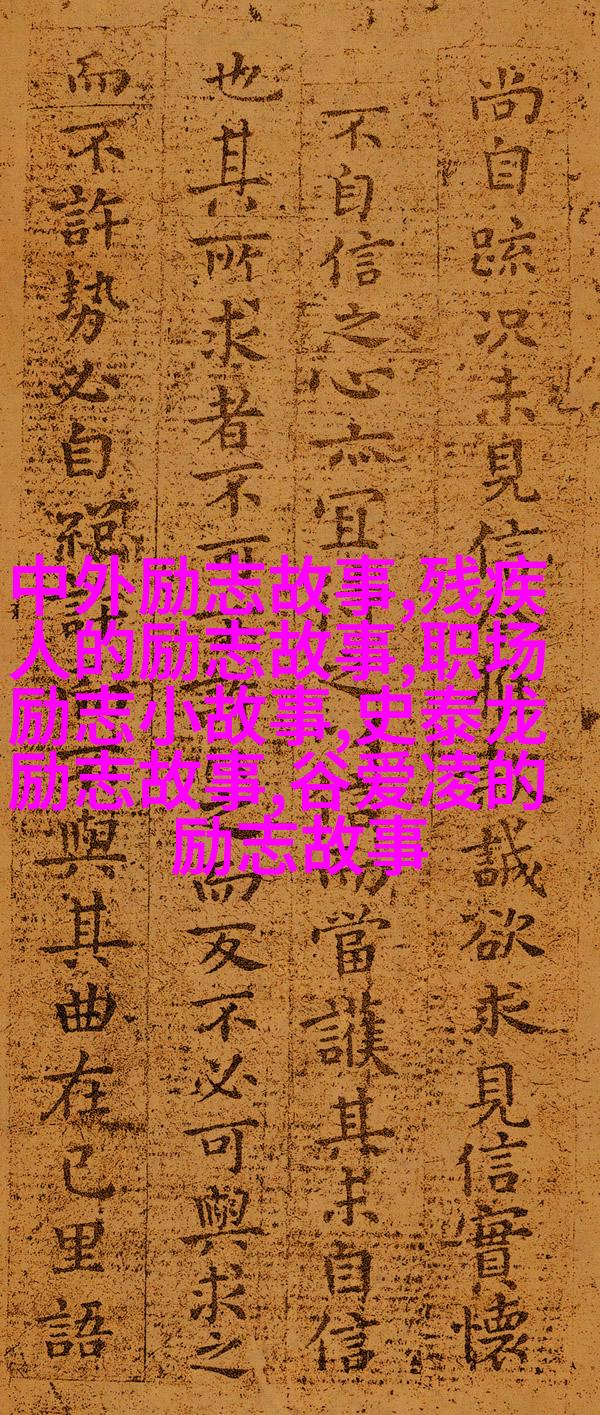 尚自疏況未見信誠欲求見信實懷
不自信之心亦宜之而當護其未自信
也其所求者不可許而反不必可與求之
而不許勢必自絕許與其曲在己里語
中外励志故事,残疾
人的励志故事,职场
励志小故事,史泰龙
励志故事,谷爱凌的
励志故事